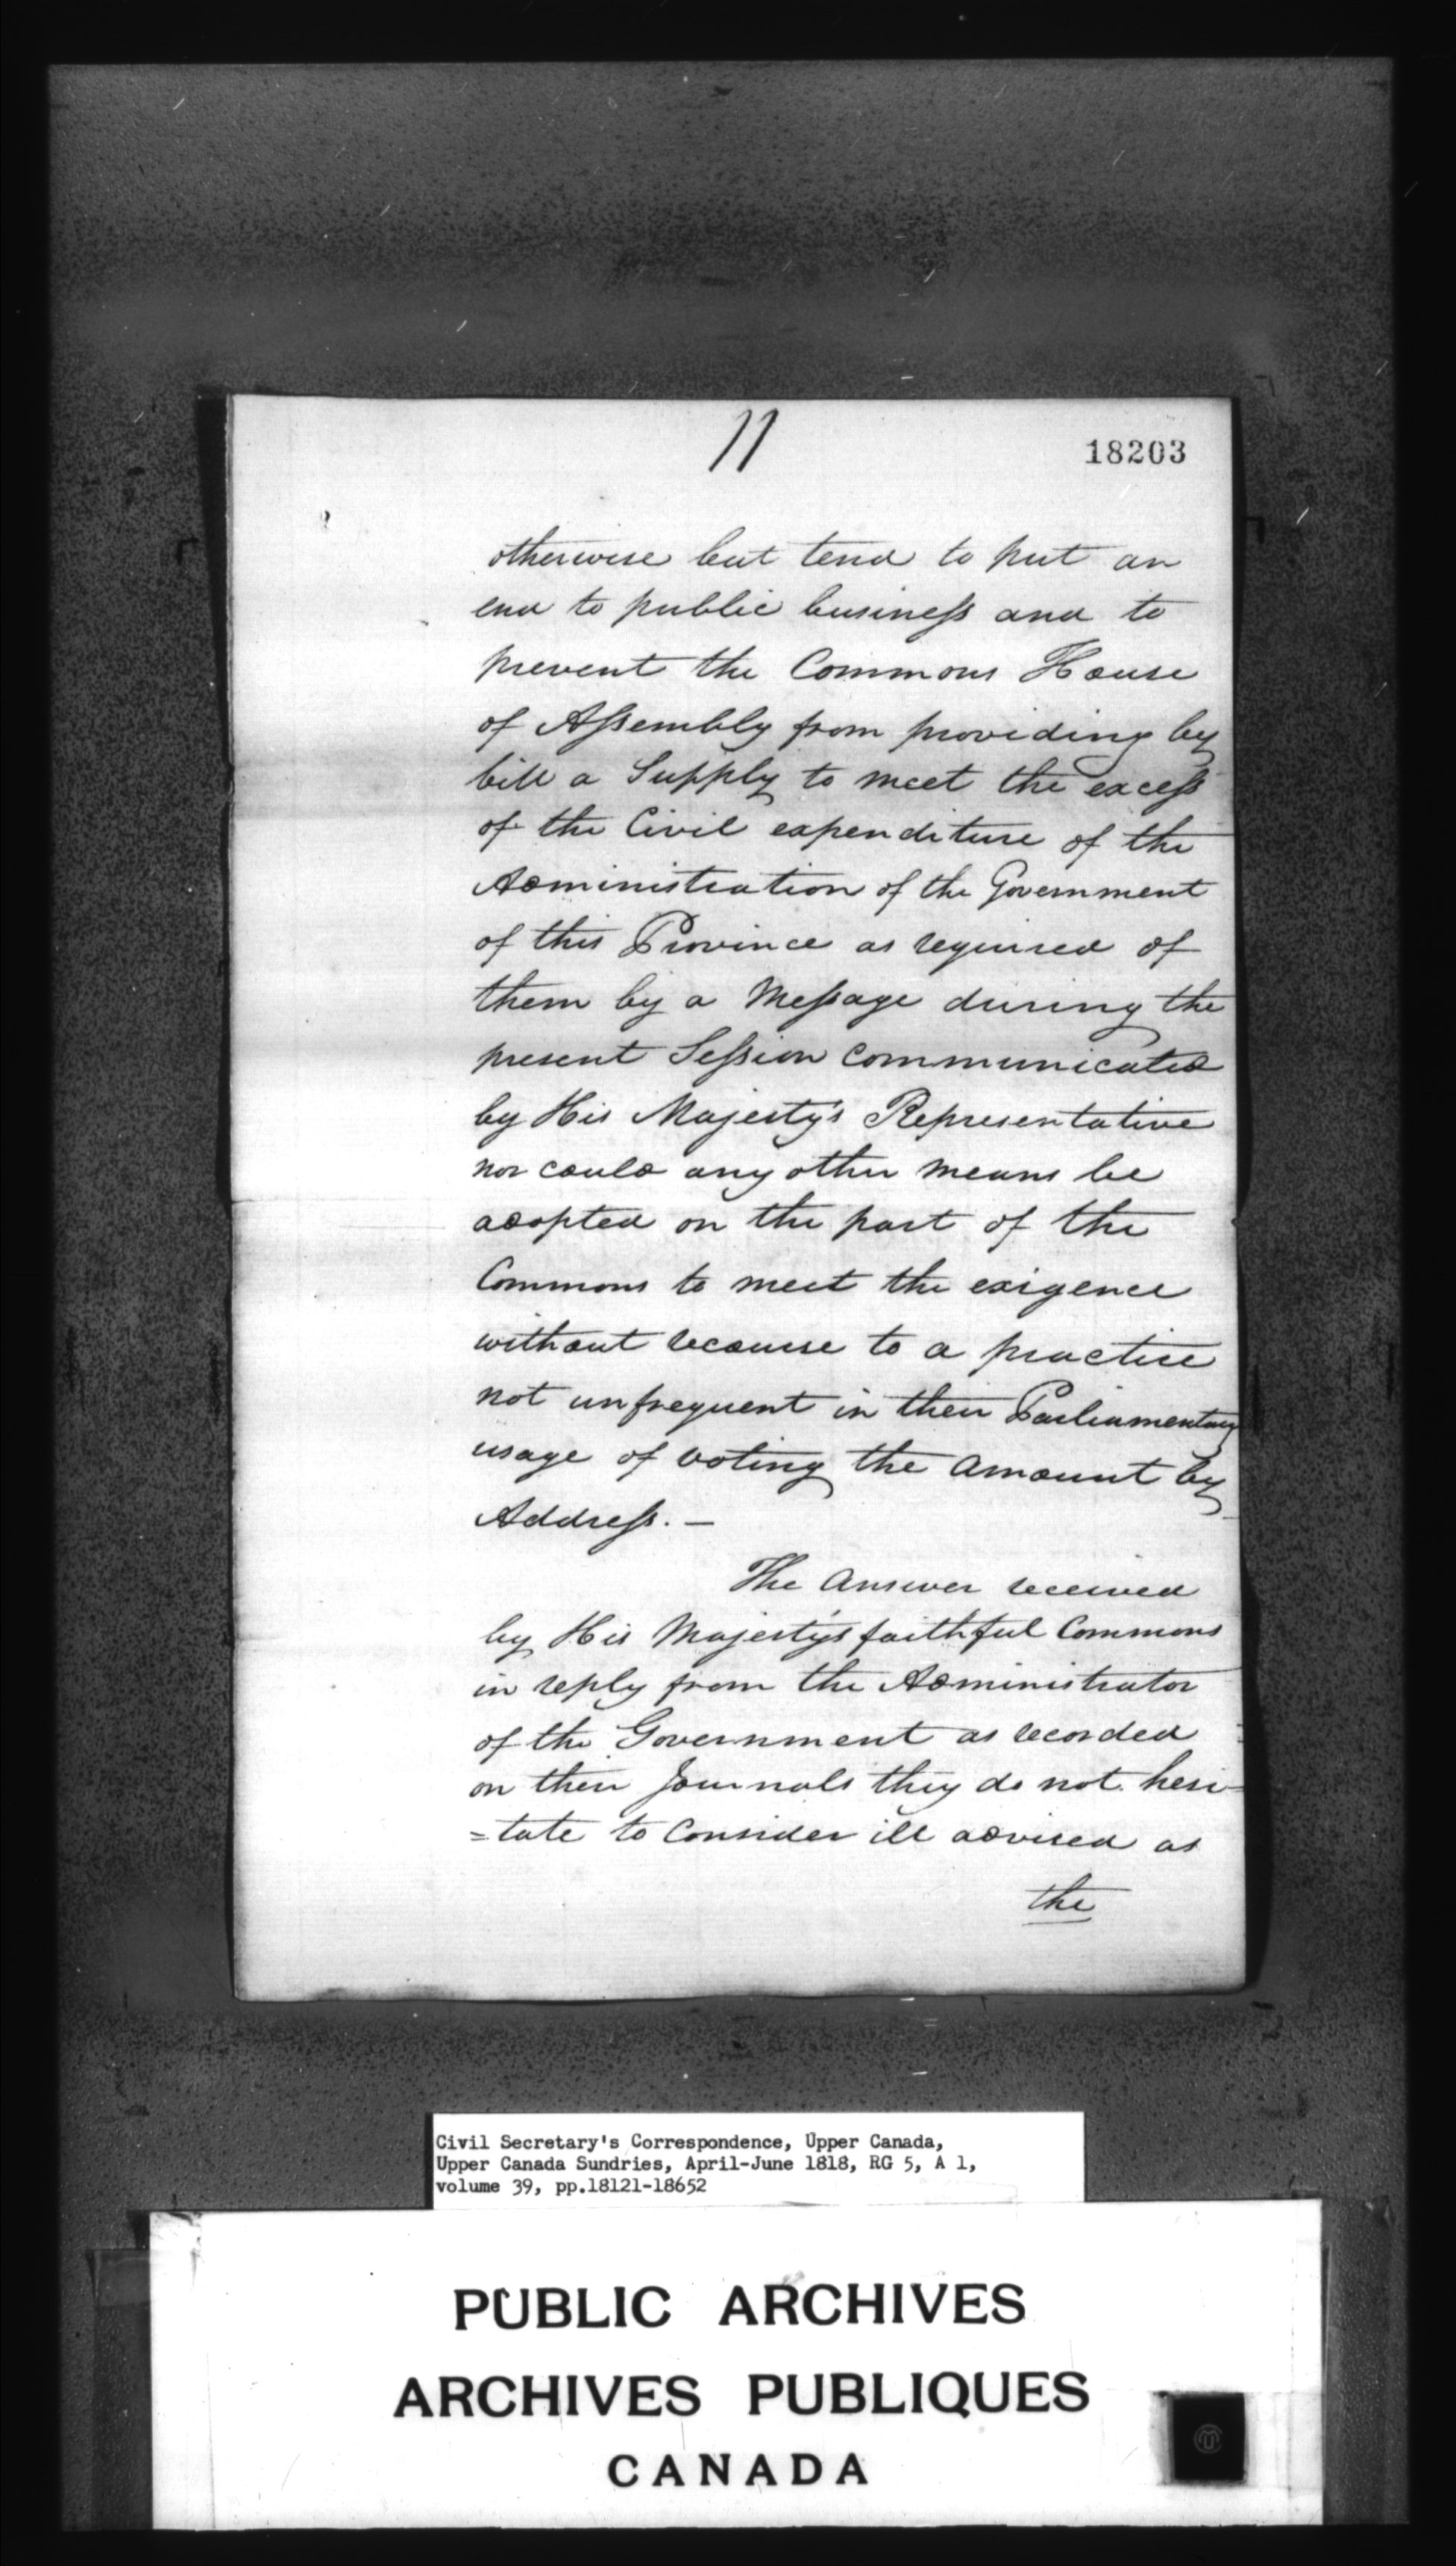 11
18203
otherwise but tend to put an
end to public busineſs and to
prevent the Commons House
of Aſsembly from providing by
bill a Supply to meet the exceſs
of the Civil expenditure of the
Administration of the Government
of this Province as required of
them by a Meſsage during the
present Seſsion communicated
by His Majesty's Representative
nor could any other means be
adopted on the part of the
Commons to meet the exigence
without recourse to a practice
not unfrequent in their Parliamentary
usage of voting the amount by
Addreſs. —
The Answer received
by His Majesty's faithful Commons
in reply from the Administrator
of the Government as recorded
on their Journals they do not hesi-
=tate to Consider ill advised as
the
Civil Secretary's Correspondence, Upper Canada,
Upper Canada Sundries, April-June 1818, RG 5, A 1,
volume 39, pp.18121-18652
PUBLIC ARCHIVES
ARCHIVES PUBLIQUES
CANADA